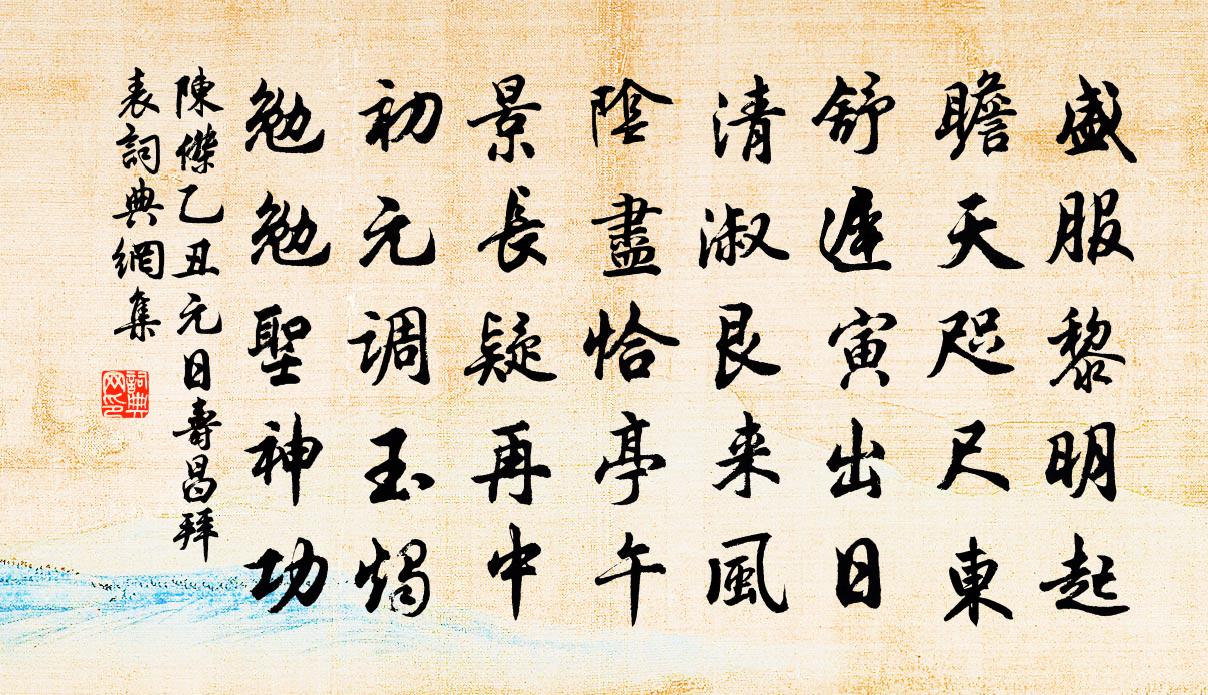 盛服黎明起
瞻天咫尺東
舒遲寅出日
清淑艮来風
陰盡恰亭午
景長疑再中
初元调玉燭
勉勉聖神功
陳傑乙丑元日壽昌拜
表詞典網集
詞典
网印